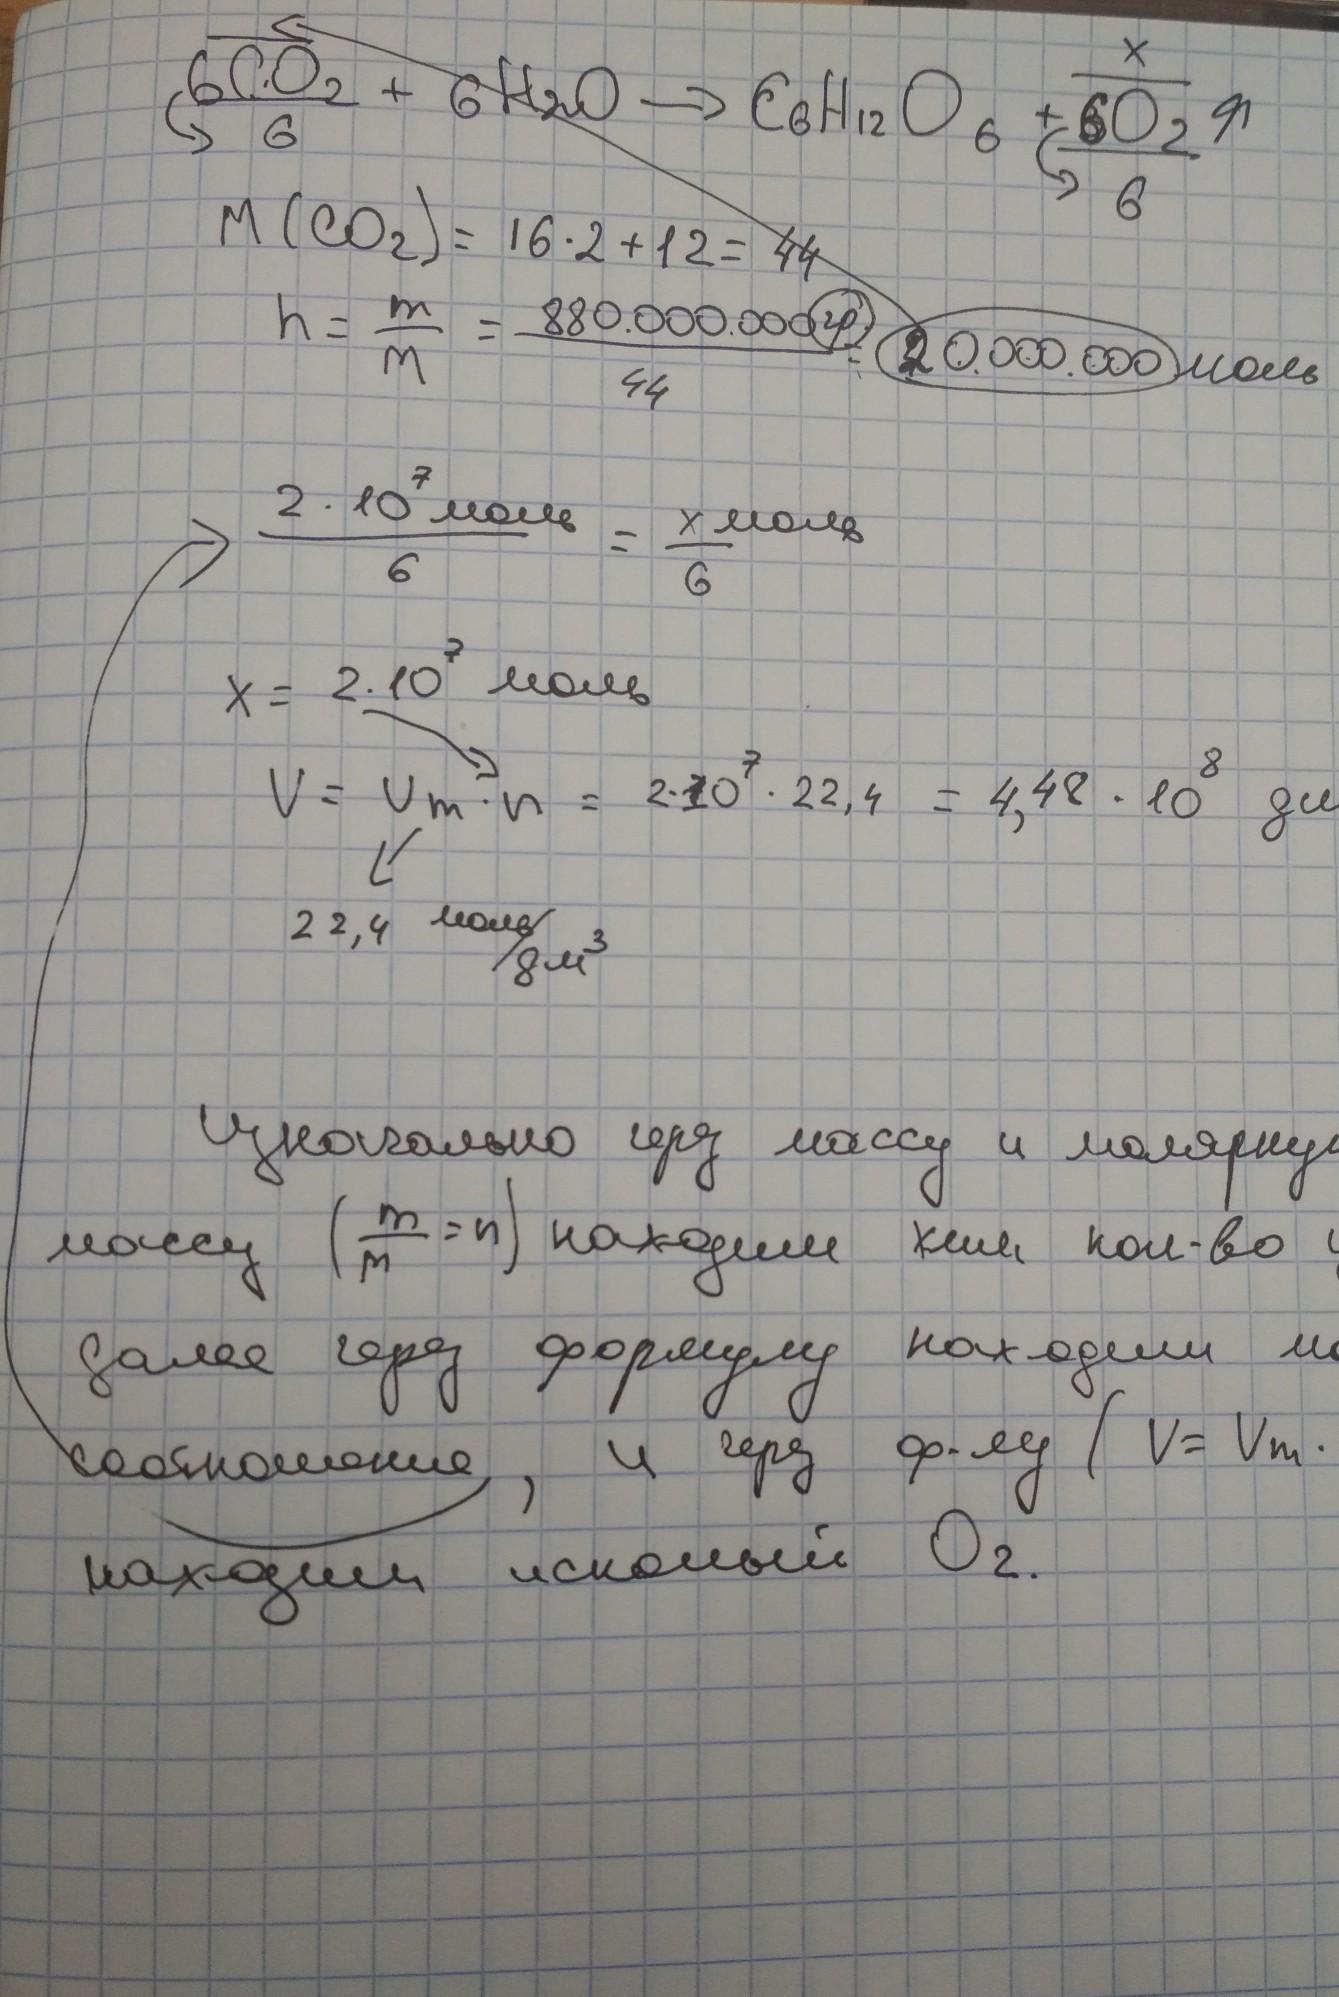 x
6CO₂ + 6H₂O → C₆H₁₂O₆ + 6O₂ ↑
6 6
M(CO₂) = 16·2+12 = 44
n = m/M = 880.000.000 гр./44 = 20.000.000 моль
2·10⁷ моль/6 = x моль/6
x = 2·10⁷ моль
V = Vm·n = 2·10⁷·22,4 = 4,48·10⁸ дм
22,4 моль/дм³
Изначально через массу и молярную
массу (m/M = n) находим хим кол-во
далее через формулу находим
соотношение, и через ф-лу (V = Vm·
находим искомый O₂.